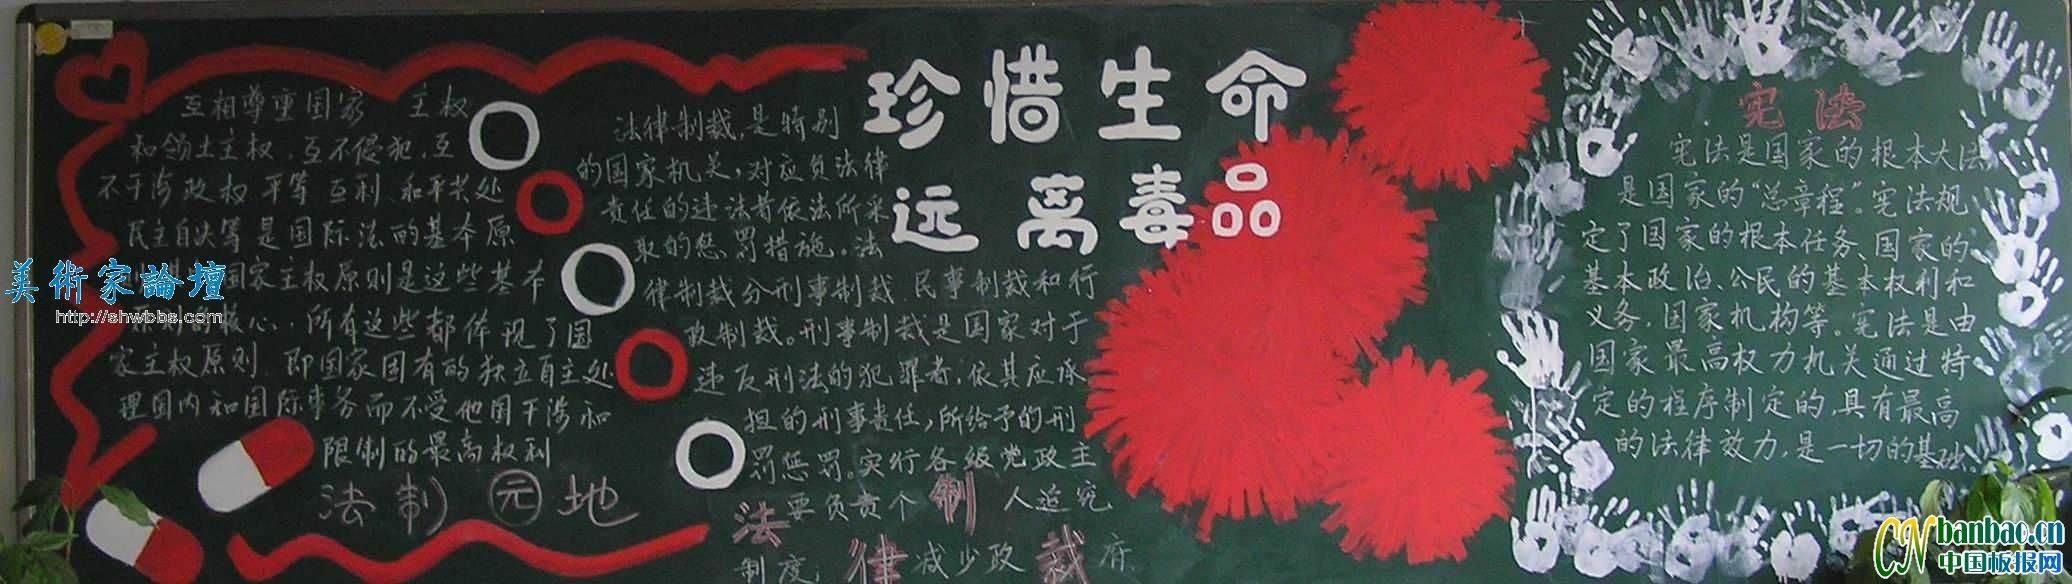 珍惜生命
远离毒品
互相尊重国家 主权
和领土主权,互不侵犯,互
不干涉政权平等互利、和平共处
民主自决等是国际法的基本原
国家主权原则是这些基本
核心,所有这些都体现了国
家主权原则,即国家固有的独立自主处
理国内和国际事务而不受他国干涉和
限制的最高权利
法制园地
法律制裁,是特别
的国家机关,对应负法律
责任的违法者依法所采
取的惩罚措施。法
律制裁分刑事制裁民事制裁和行
政制裁。刑事制裁是国家对于
违反刑法的犯罪者,依其应承
担的刑事责任,所给予的刑
罚惩罚。实行各级党政主
要负责个人追究
制度;减少政府
法律制裁
宪法
宪法是国家的根本大法
是国家的“总章程”。宪法规
定了国家的根本任务、国家的
基本政治、公民的基本权利和
义务,国家机构等。宪法是由
国家最高权力机关通过特
定的程序制定的,具有最高
的法律效力,是一切的基础
美術家論壇
http://shwbbs.com
CN banbao.cn
中国板报网